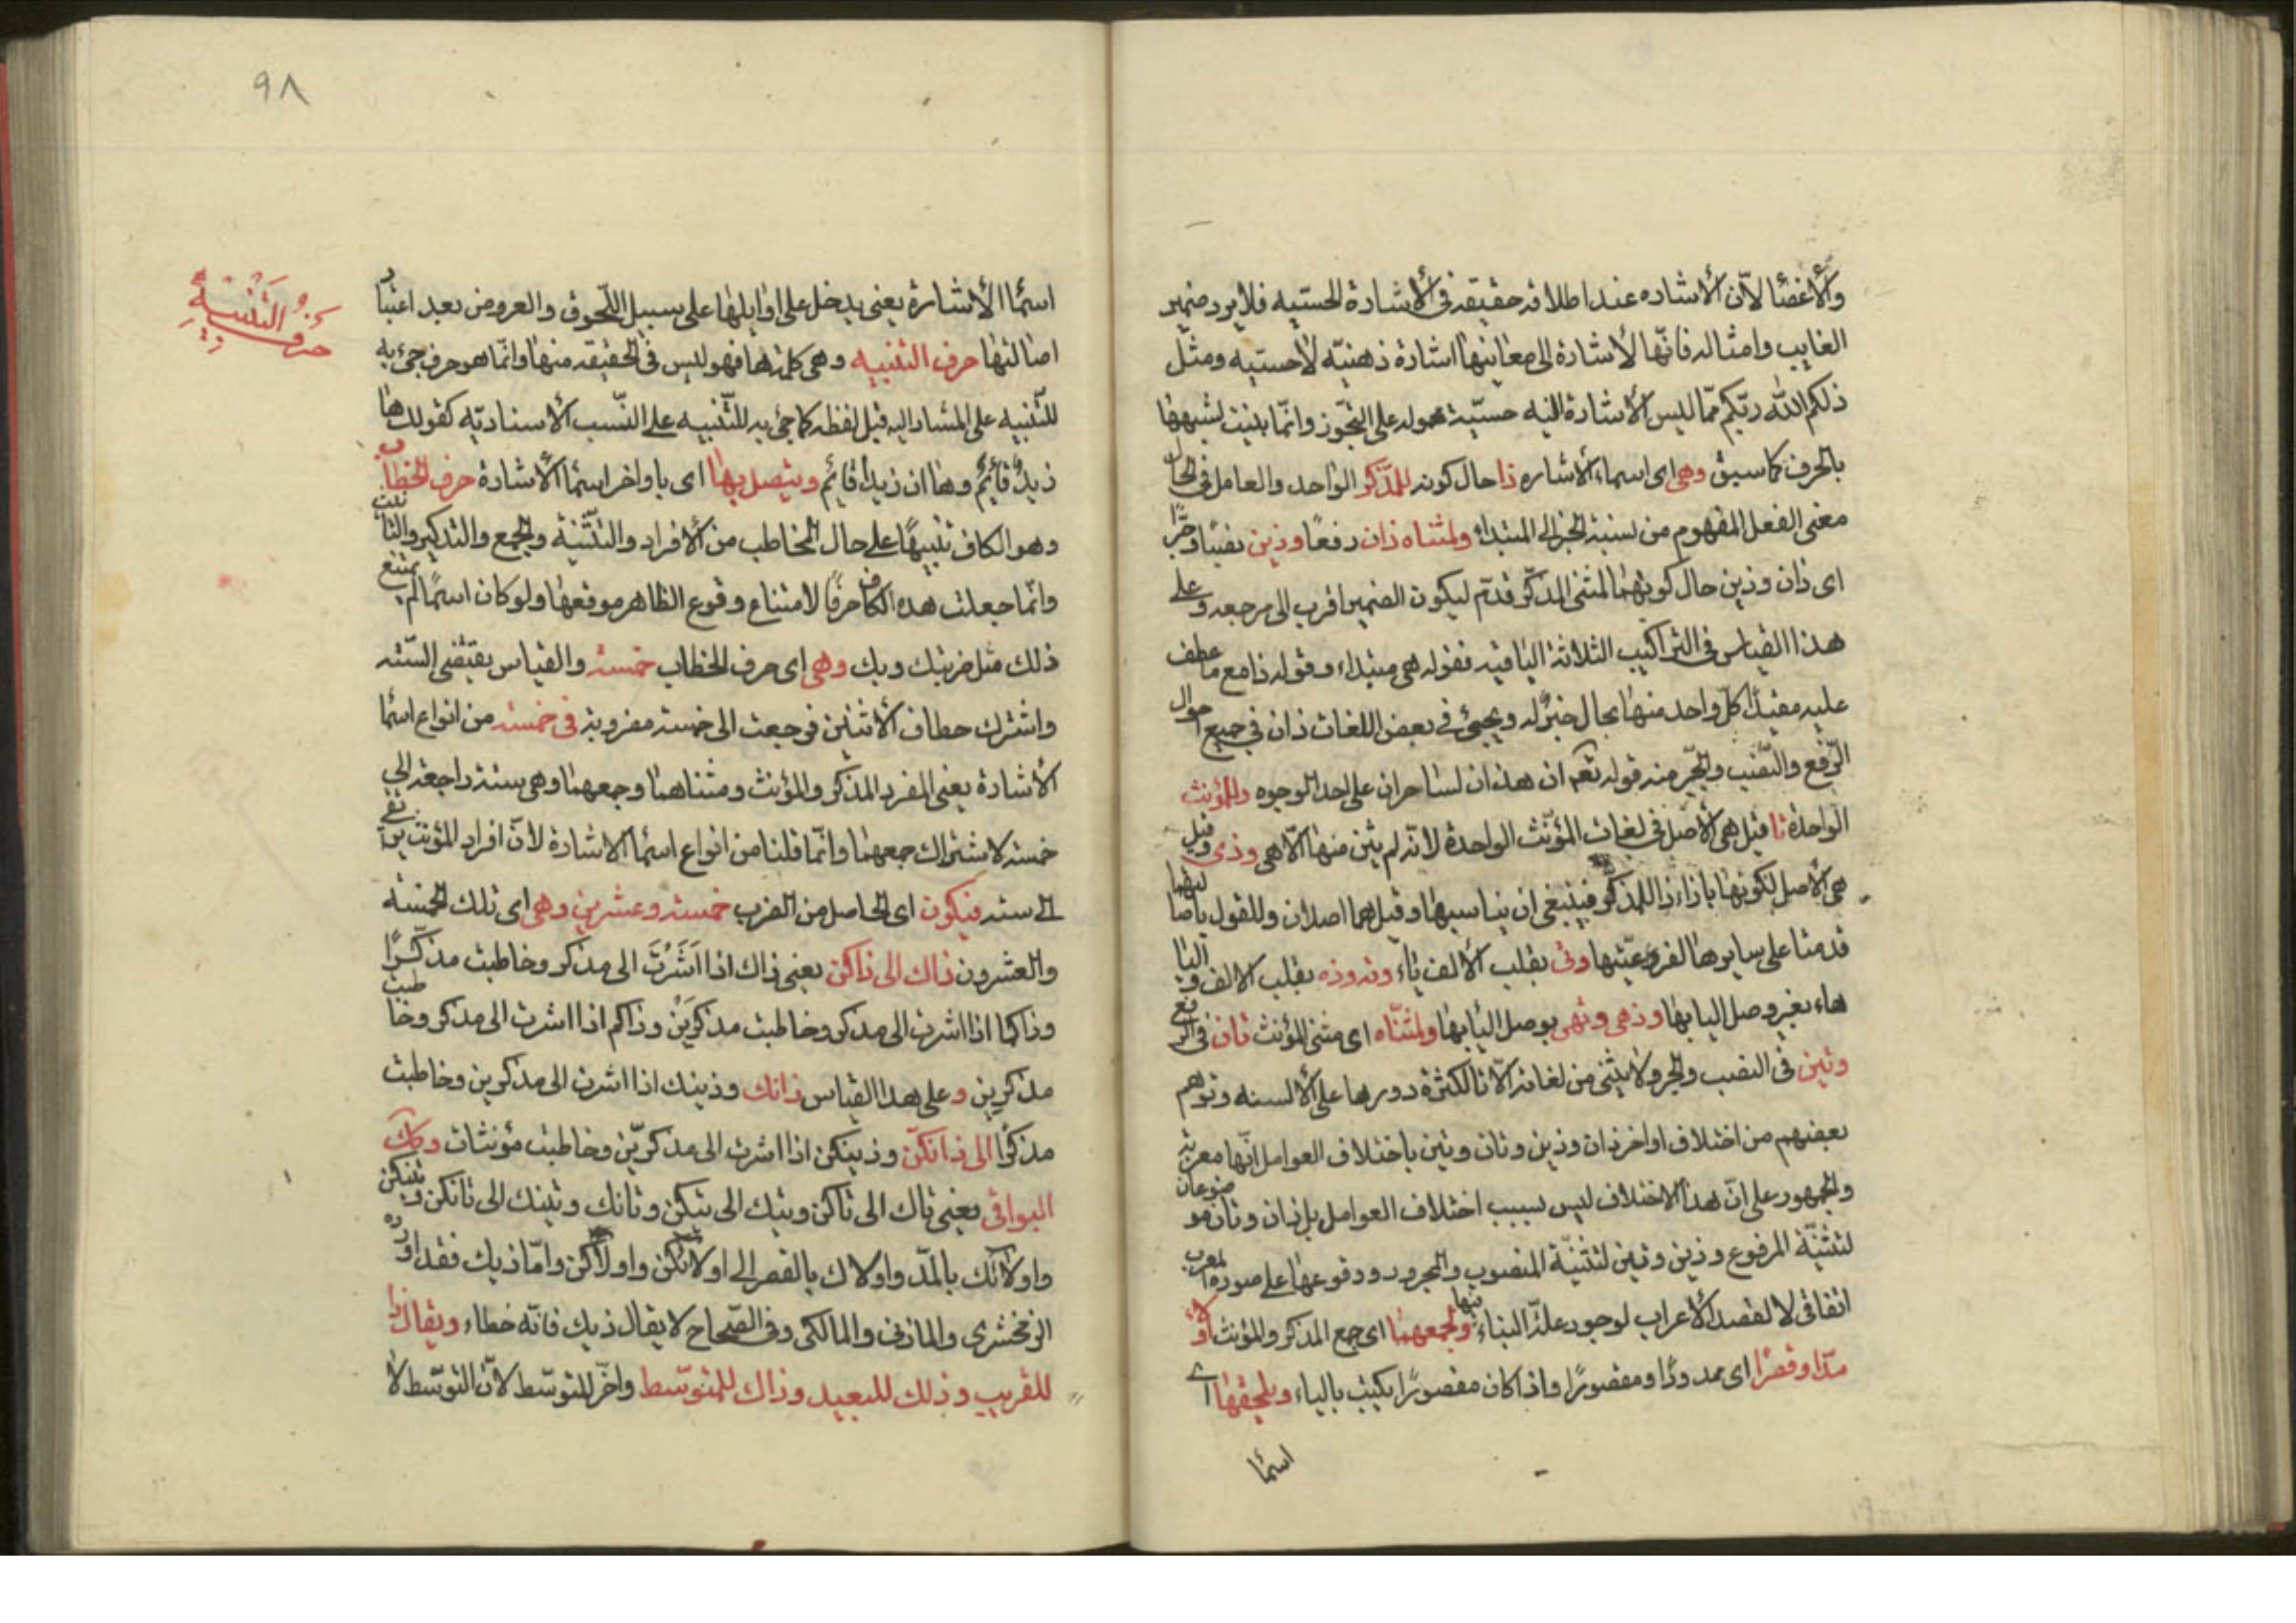 والأعضا لأن الأشاره عند اطلاقه حقيقه فى الأشارة الحسيه فلا يرد ضمير
الغايب وامثاله فانّها لأشارة الى معاينها اشارة ذهنيّه لا حسيه ومثل
ذلكم الله ربّكم ممّا ليس الأشارة اليه حسيّة محموله على التجّوز وانّما بنيت لشبهها
بالحرف كما سبق وهى اى اسماء الأشاره ذا حال كونه للمذّكر الواحد والعامل فى الحال
معنى الفعل المفهوم من نسبة الخبر الى المبتداء ولمثناه ذان رفعًا وذين نصبًا وجرًّا
اى ذان وذين حال كونهما لمثنى المذكّر قدّم ليكون الضمير اقرب الى مرجعه وعلى
هذا القياس فى التراكيب الثلاثة الباقيه فقوله هى مبتداء وقوله ذا مع ما عطف
عليه مقيدًا كلّ واحد منها بحال خبرٌ له ويجيئ فى بعض اللغات ذان فى جميع احوال
الرّفع والنّصب والجّر منه قوله تعم ان هذان لساحران على احد الوجوه وللمؤنث
الواحدة تا قيل هى الأصل فى لغات المؤنّث الواحدة لأنّه لم يثن منها الّا هى وذى وقيل
هى الأصل لكونها بازاء ذا للمذكر فينبغى ان يناسبها وقيل هما اصلان وللقول باصالتهما
قدمتا على سايرها لفرعيّتها وتى بقلب الألف ياء وته وذه بقلب الالف واليا
هاء بغير وصل اليا بها وذهى وتهى بوصل اليا بها ولمثنّاه اى مثنى المؤنث تان فى الرفع
وتين فى النصب والجر ولا يثنى من لغاته الّا تا لكثرة دورها على الألسنه وتوهم
بعضهم من اختلاف اواخر ذان وذين وتان وتين باختلاف العوامل انّها معربة
والجمهور على انّ هذا الاختلاف ليس بسبب اختلاف العوامل بل ذان وتان موضوعان
لتثنيّة المرفوع وذين وتين لتثنيّة المنصوب والمجرور ووقوعها على صورة المعرب
اتفاقى لا لقصد الأعراب لوجود علّة البناء فيها ولجمعهما اى جمع المذكر والمؤنث اولاء
مدّا وقصرًا اى ممدودًا ومقصورًا واذا كان مقصورًا يكتب بالياء ويلحقها اى
اسما
٩٨
اسما الأشارة يعنى يدخل على اوايلها على سبيل اللّحوق والعروض بعد اعتبار
اصالتها حرف التنبيه وهى كلمة ها فهو ليس فى الحقيقه منها وانّما هو حرف جىء به
حرف التنبيه
للتّنبيه على المشار اليه قبل لفظه كما جىء به للتّنبيه على النّسب الأسناديّه كقولك ها
زيدٌ قائمٌ وها ان زيدًا قائم ويتصل بها اى باواخر اسما الأشارة حرف الخطاب
وهو الكاف تنبيهًا على حال المخاطب من الأفراد والتّثنية والجمع والتذكير والتانيث
وانّما جعلت هذه الكاف حرفًا لامتناع وقوع الظاهر موقعها ولو كان اسمًا لم يمتنع
ذلك مثل ضربتك وبك وهى اى حرف الخطاب خمسة والقياس يقتضى السّته
واشترك خطاب الأثنين فرجعت الى خمسه مضروبة فى خمسه من انواع اسما
الأشارة يعنى المفرد المذكر والمؤنث ومثناهما وجمعهما وهى ستة راجعة الى
خمسة لاشتراك جمعهما وانّما قلنا من انواع اسما الاشارة لانّ افراد المؤنث يرتقى
الى سته فيكون اى الحاصل من الضرب خمسة وعشرين وهى اى تلك الخمسة
والعشرون ذاك الى ذاكن يعنى ذاك اذا اَشَرْتَ الى مذكر وخاطبت مذكّرًا
وذاكما اذا اشرت الى مذكر وخاطبت مذكرَيْن وذاكم اذا اشرت الى مذكر وخاطبت
مذكرِين وعلى هذا القياس ذانك وذينك اذا اشرت الى مذكرين وخاطبت
مذكّرًا الى ذانكنّ وذينكن اذا اشرت الى مذكريّن وخاطبت مؤنثات وكذلك
البواقى يعنى تاك الى تاكن وتيك الى تيكن وتانك وتينك الى تانكن وتينكن
واولآئك بالمدّ واولاك بالقصر الى اولائكن واولاكن وامّا ذيك فقد اورده
الزمخشرى والمازنى والمالكى وفى الصّحاح لا يقال ذيك فانّه خطاء ويقال ذا
للقريب وذلك للبعيد وذاك للمتوسّط واخّر للتوسّط لأنّ التوسّط لا